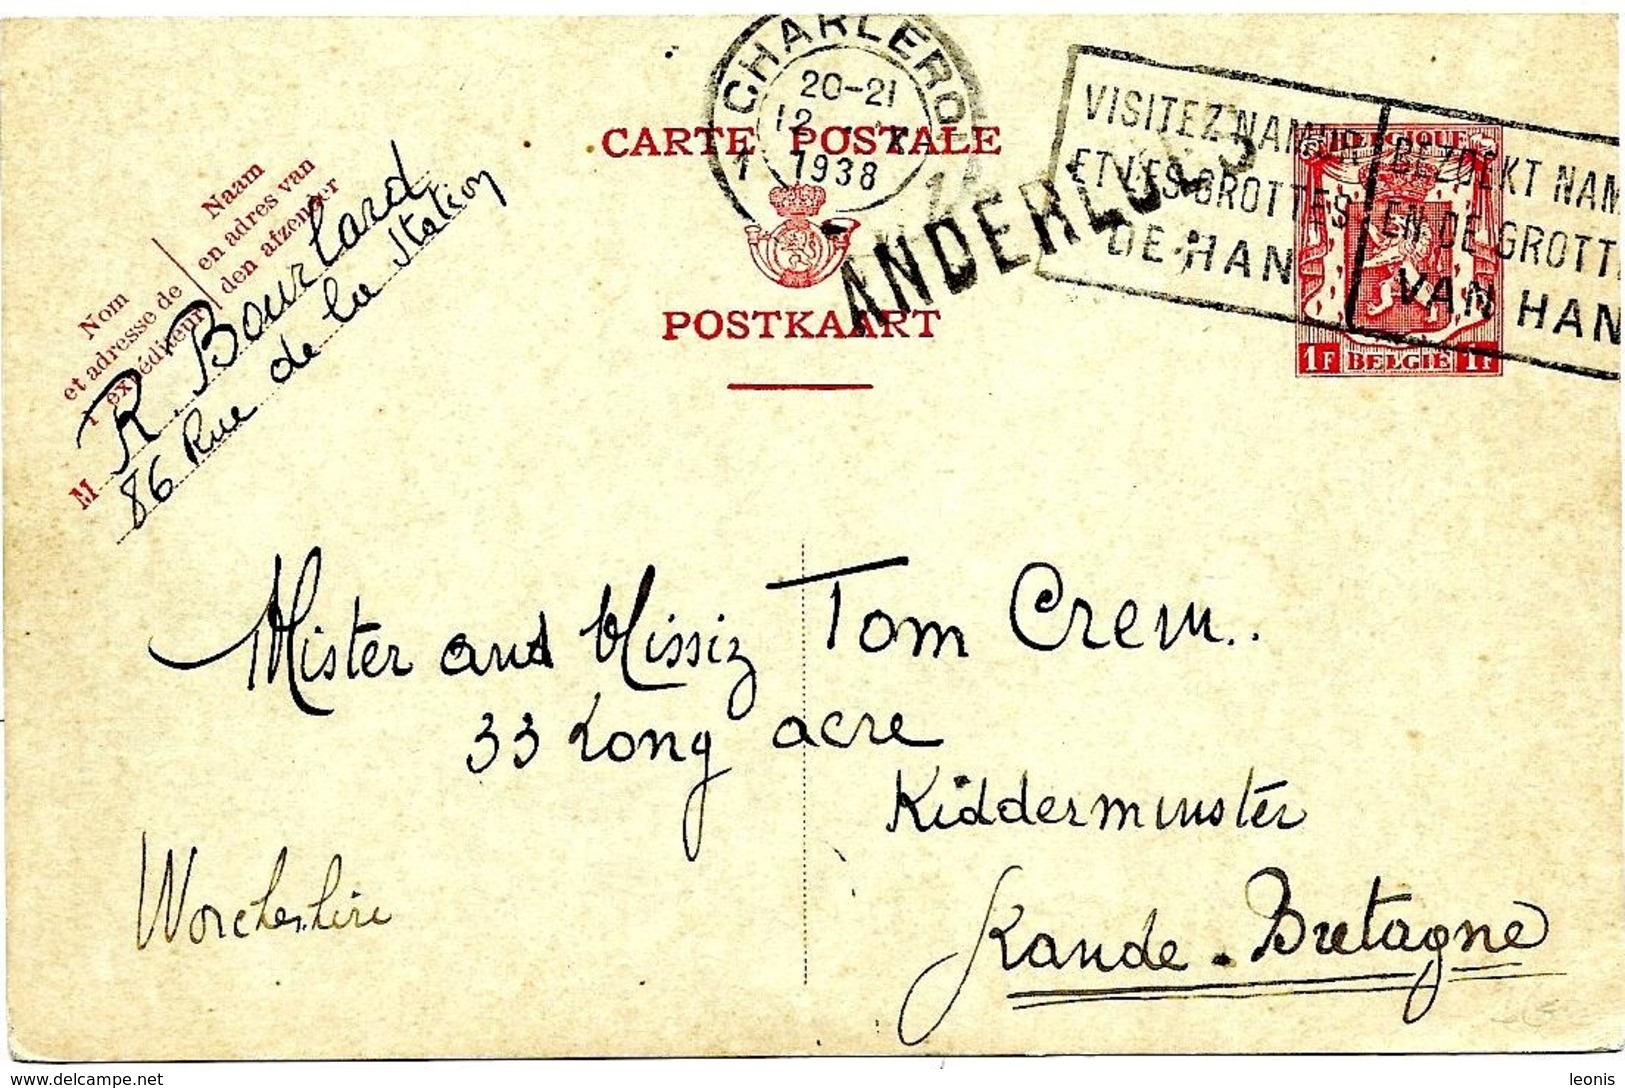 CHARLEROI
20-21
12 - X
1 1938
CARTE POSTALE
POSTKAART
ANDERLUES
VISITEZ NAMUR
ET LES GROTTES
DE HAN
BEZOEKT NAM
EN DE GROTT
VAN HAN
BELGIQUE
1F BELGIE 1F
Naam
en adres van
den afzender
Nom
et adresse de
l'expéditeur
M R. Bourlard
86 Rue de la Station
Mister and Missiz Tom Crem..
33 Long acre
Kidderminster
Worcheshire
Grande-Bretagne
https://www.delcampe.net
leonis